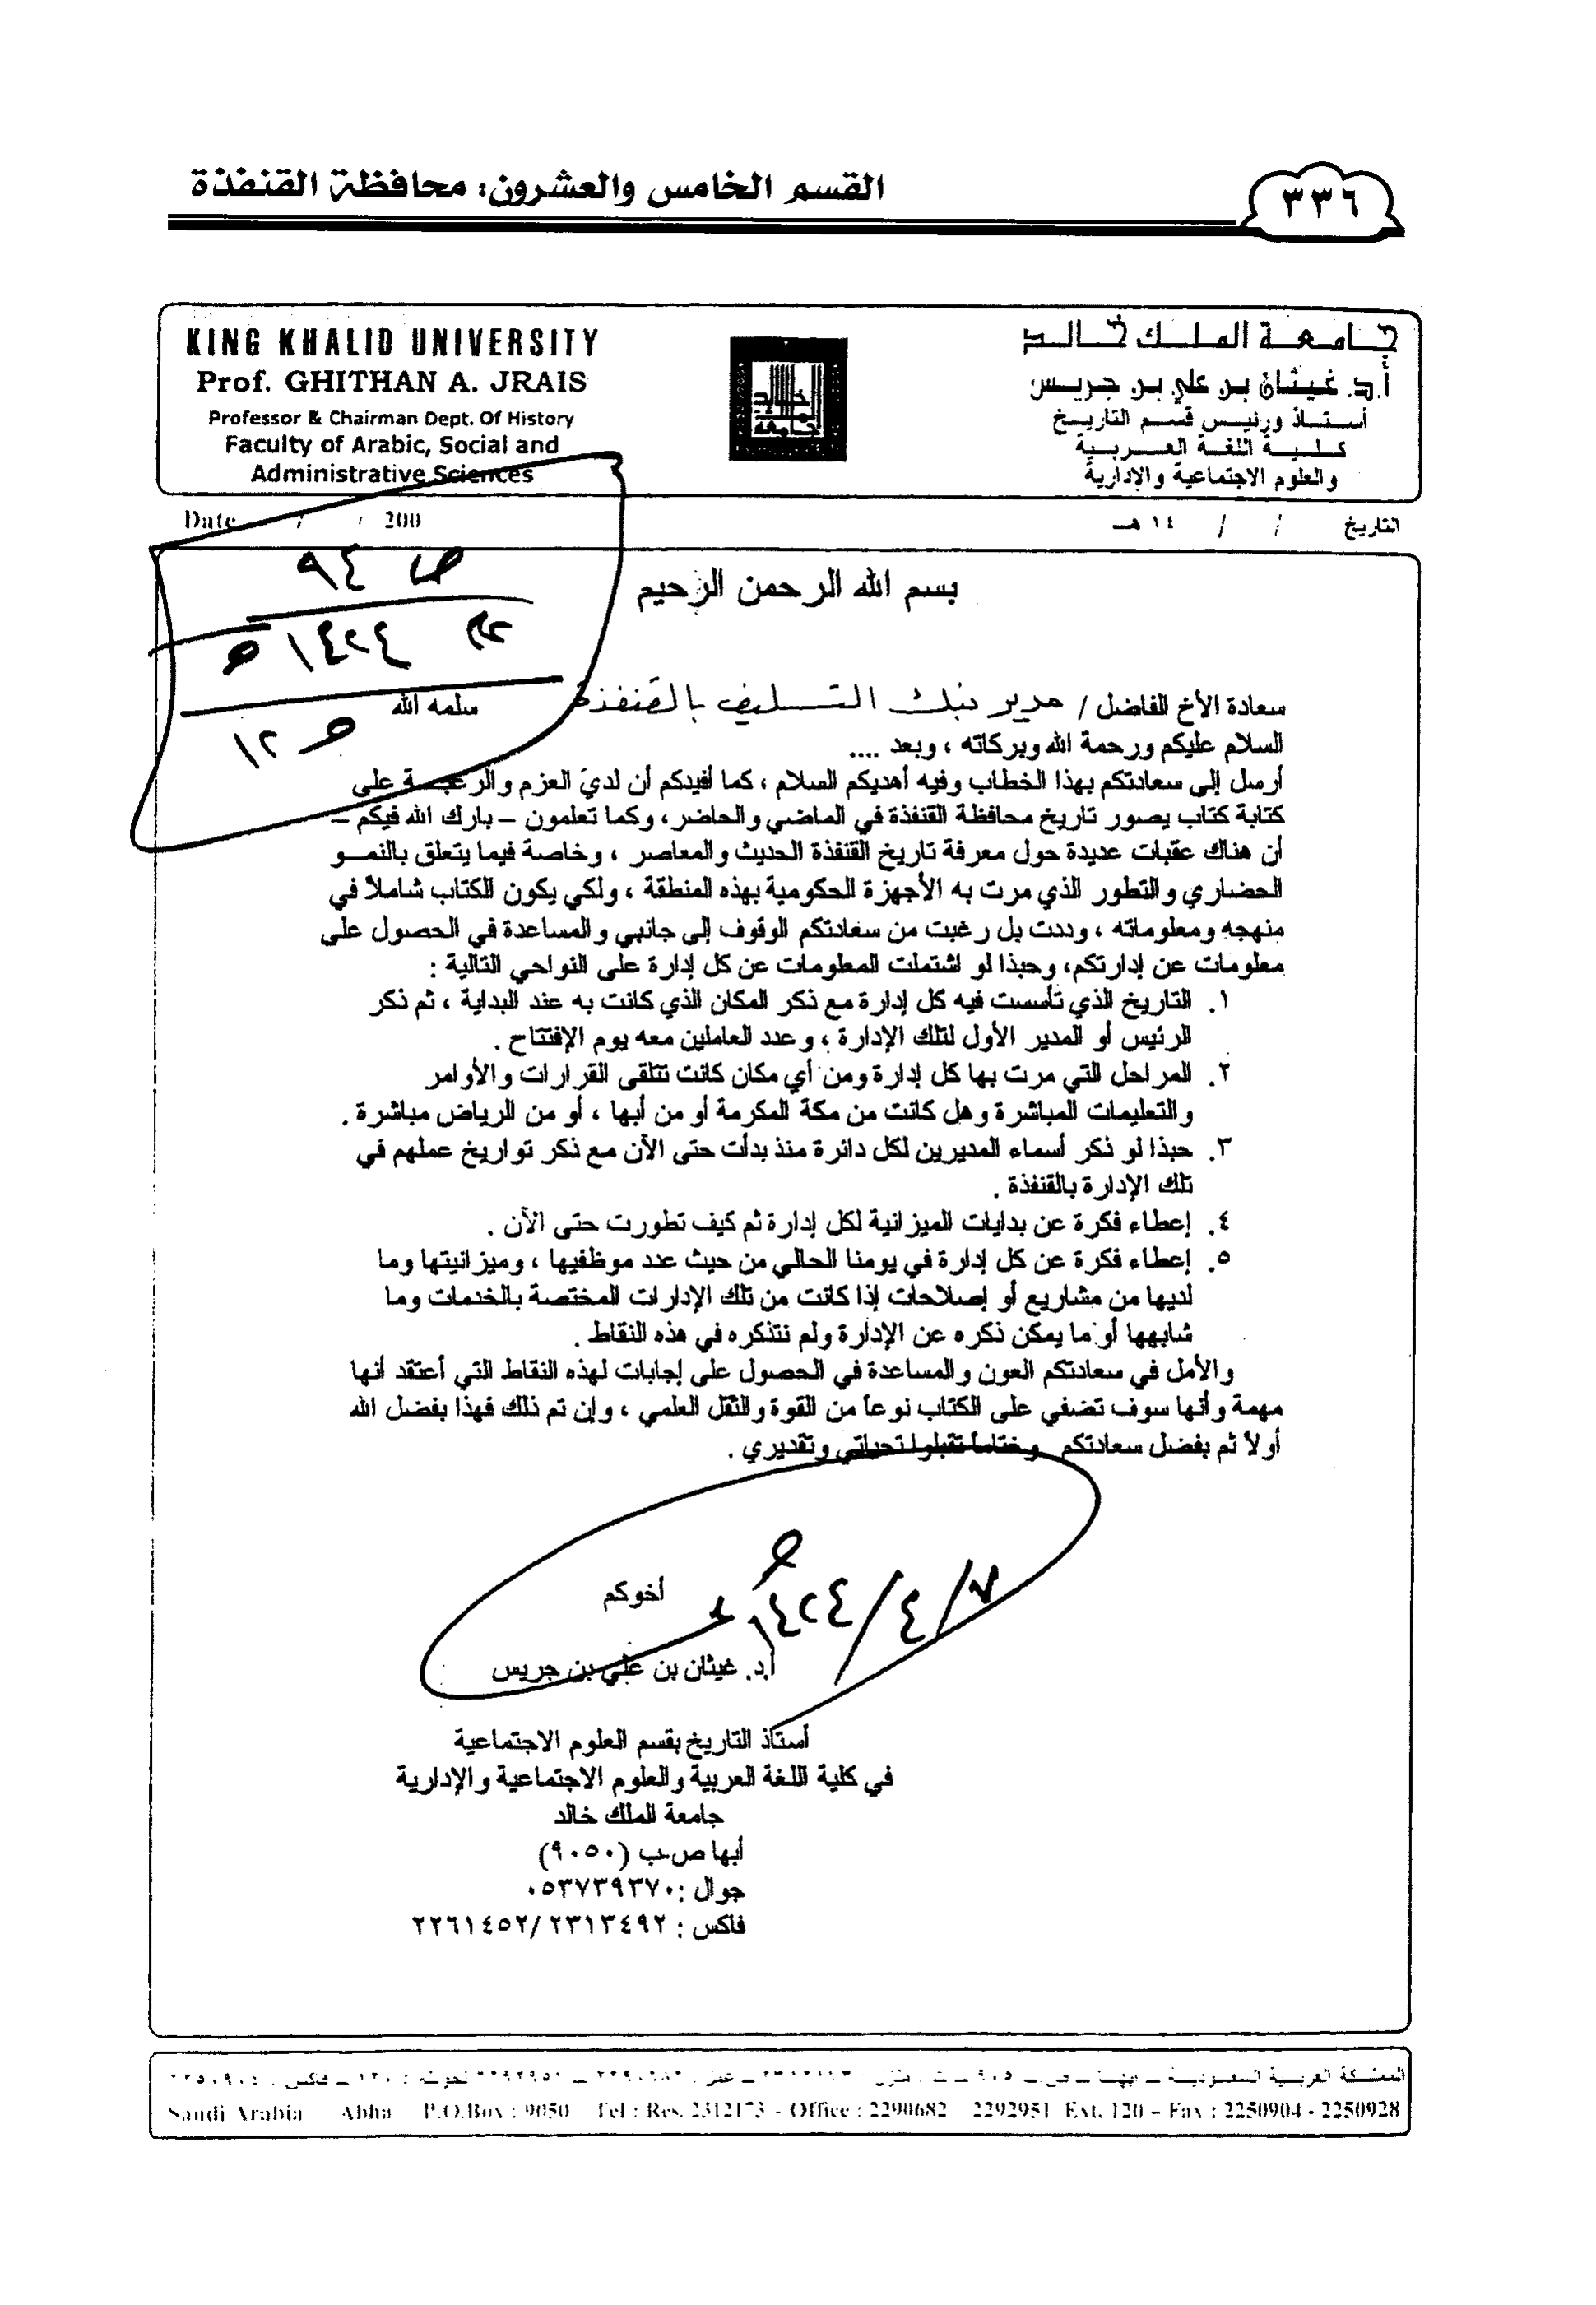 ٣٣٦
القسم الخامس والعشرون: محافظة القنفذة
جامعة الملك خالد
أ.د. غيثان بن علي بن جريس
أستاذ ورئيس قسم التاريخ
كلية اللغة العربية
والعلوم الاجتماعية والإدارية
KING KHALID UNIVERSITY
Prof. GHITHAN A. JRAIS
Professor & Chairman Dept. Of History
Faculty of Arabic, Social and
Administrative Sciences
التاريخ / / ١٤ هـ
Date / / 200
ص ٩٤
١٤٢٤ هـ
ص ١٢
بسم الله الرحمن الرحيم
سعادة الأخ الفاضل / مدير بنك التسليف بالقنفذة سلمه الله
السلام عليكم ورحمة الله وبركاته ، وبعد ....
أرسل إلى سعادتكم بهذا الخطاب وفيه أهديكم السلام ، كما أفيدكم أن لديّ العزم والرغبة على
كتابة كتاب يصور تاريخ محافظة القنفذة في الماضي والحاضر، وكما تعلمون – بارك الله فيكم –
أن هناك عقبات عديدة حول معرفة تاريخ القنفذة الحديث والمعاصر ، وخاصة فيما يتعلق بالنمو
الحضاري والتطور الذي مرت به الأجهزة الحكومية بهذه المنطقة ، ولكي يكون الكتاب شاملاً في
منهجه ومعلوماته ، وددت بل رغبت من سعادتكم الوقوف إلى جانبي والمساعدة في الحصول على
معلومات عن إدارتكم، وحبذا لو اشتملت المعلومات عن كل إدارة على النواحي التالية :
١. التاريخ الذي تأسست فيه كل إدارة مع ذكر المكان الذي كانت به عند البداية ، ثم ذكر
الرئيس أو المدير الأول لتلك الإدارة ، وعدد العاملين معه يوم الإفتتاح .
٢. المراحل التي مرت بها كل إدارة ومن أي مكان كانت تتلقى القرارات والأوامر
والتعليمات المباشرة وهل كانت من مكة المكرمة أو من أبها ، أو من الرياض مباشرة .
٣. حبذا لو ذكر أسماء المديرين لكل دائرة منذ بدأت حتى الآن مع ذكر تواريخ عملهم في
تلك الإدارة بالقنفذة .
٤. إعطاء فكرة عن بدايات الميزانية لكل إدارة ثم كيف تطورت حتى الآن .
٥. إعطاء فكرة عن كل إدارة في يومنا الحالي من حيث عدد موظفيها ، وميزانيتها وما
لديها من مشاريع أو إصلاحات إذا كانت من تلك الإدارات المختصة بالخدمات وما
شابهها أو ما يمكن ذكره عن الإدارة ولم نتذكره في هذه النقاط .
والأمل في سعادتكم العون والمساعدة في الحصول على إجابات لهذه النقاط التي أعتقد أنها
مهمة وأنها سوف تضفي على الكتاب نوعاً من القوة والثقل العلمي ، وإن تم ذلك فهذا بفضل الله
أولاً ثم بفضل سعادتكم وختاماً تقبلوا تحياتي وتقديري .
٧/٤/١٤٢٤ هـ
أخوكم
أ.د. غيثان بن علي بن جريس
أستاذ التاريخ بقسم العلوم الاجتماعية
في كلية اللغة العربية والعلوم الاجتماعية والإدارية
جامعة الملك خالد
أبها ص.ب (٩٠٥٠)
جوال :٠٥٣٧٣٩٣٧٠
فاكس : ٢٢٦١٤٥٢/٢٣١٣٤٩٢
المملكة العربية السعودية ـ أبها ـ
Saudi Arabia Abha P.O.Box : 9050 Tel : Res. 2312173 - Office : 2290682 2292951 Ext. 120 – Fax : 2250904 - 2250928